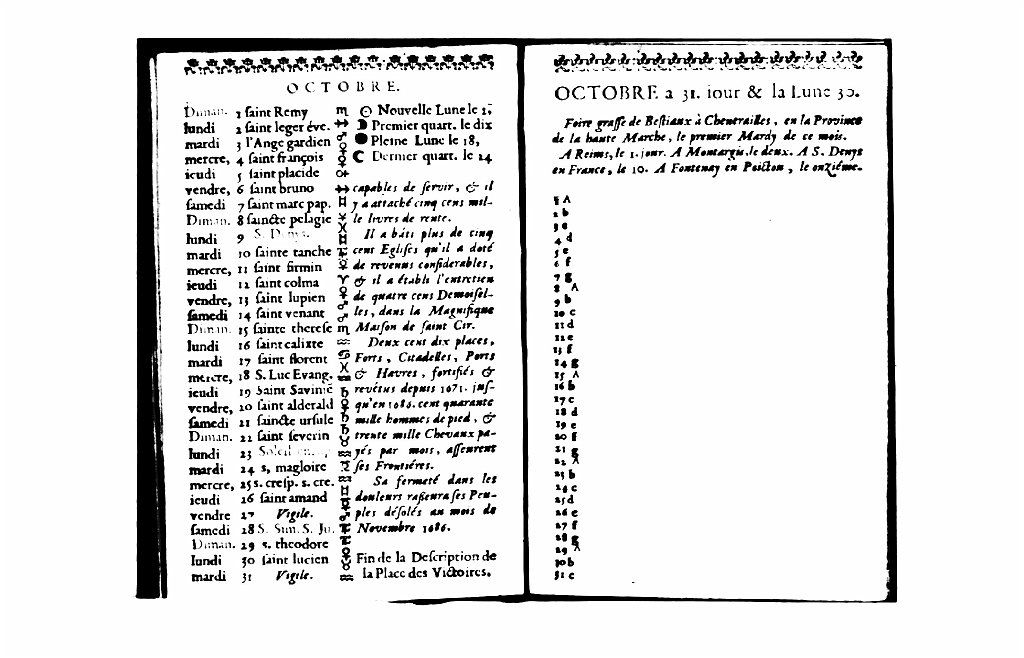 OCTOBRE.
Diman. 1 saint Remy ♏ ☉ Nouvelle Lune le 1;
lundi 2 saint leger éve. ☽ Premier quart. le dix
mardi 3 l'Ange gardien ● Pleine Lune le 18,
mercre, 4 saint françois ☾ Dernier quart. le 24
ieudi 5 saint placide
vendre, 6 saint bruno capables de servir, & il
samedi 7 saint marc pap. y a attaché cinq cens mil-
Diman. 8 saincte pelagie le livres de rente.
lundi 9 S. Denys. Il a bâti plus de cinq
mardi 10 sainte tanche cent Eglises qu'il a doté
mercre, 11 saint firmin de revenus considerables,
ieudi 12 saint colma & il a établi l'entretien
vendre, 13 saint lupien de quatre cens Demoisel-
samedi 14 saint venant les, dans la Magnifique
Diman. 15 sainte therese ♏ Maison de saint Cir.
lundi 16 saint calixte Deux cent dix places,
mardi 17 saint florent Forts, Citadelles, Ports
mercre, 18 S. Luc Evang. & Havres, fortifiés &
ieudi 19 Saint Savinié revétus depuis 1671. jus-
vendre, 20 saint alderald qu'en 1686. cent quarante
samedi 21 saincte ursule mille hommes de pied, &
Diman. 22 saint severin trente mille Chevaux pa-
lundi 23 Soleil yés par mois, asseurent
mardi 24 s, magloire ses Frontiéres.
mercre, 25 s. cresp. s. cre. Sa fermeté dans les
ieudi 26 saint amand douleurs rasseura ses Peu-
vendre 27 Vigile. ples désolés au mois de
samedi 28 S. Sim. S. Ju. Novembre 1686.
Diman. 29 s. theodore
lundi 30 saint lucien Fin de la Description de
mardi 31 Vigile. la Place des Victoires.
OCTOBRE a 31. iour & la Lune 30.
Foire grasse de Bestiaux à Chenerailles, en la Province
de la haute Marche, le premier Mardy de ce mois.
A Reims, le 1. jour. A Montargis, le deux. A S. Denys
en France, le 10. A Fontenay en Poicton, le onziéme.
1 A
2 b
3 c
4 d
5 e
6 f
7 g
8 A
9 b
10 c
11 d
12 e
13 f
14 g
15 A
16 b
17 c
18 d
19 e
20 f
21 g
22 A
23 b
24 c
25 d
26 e
27 f
28 g
29 A
30 b
31 c